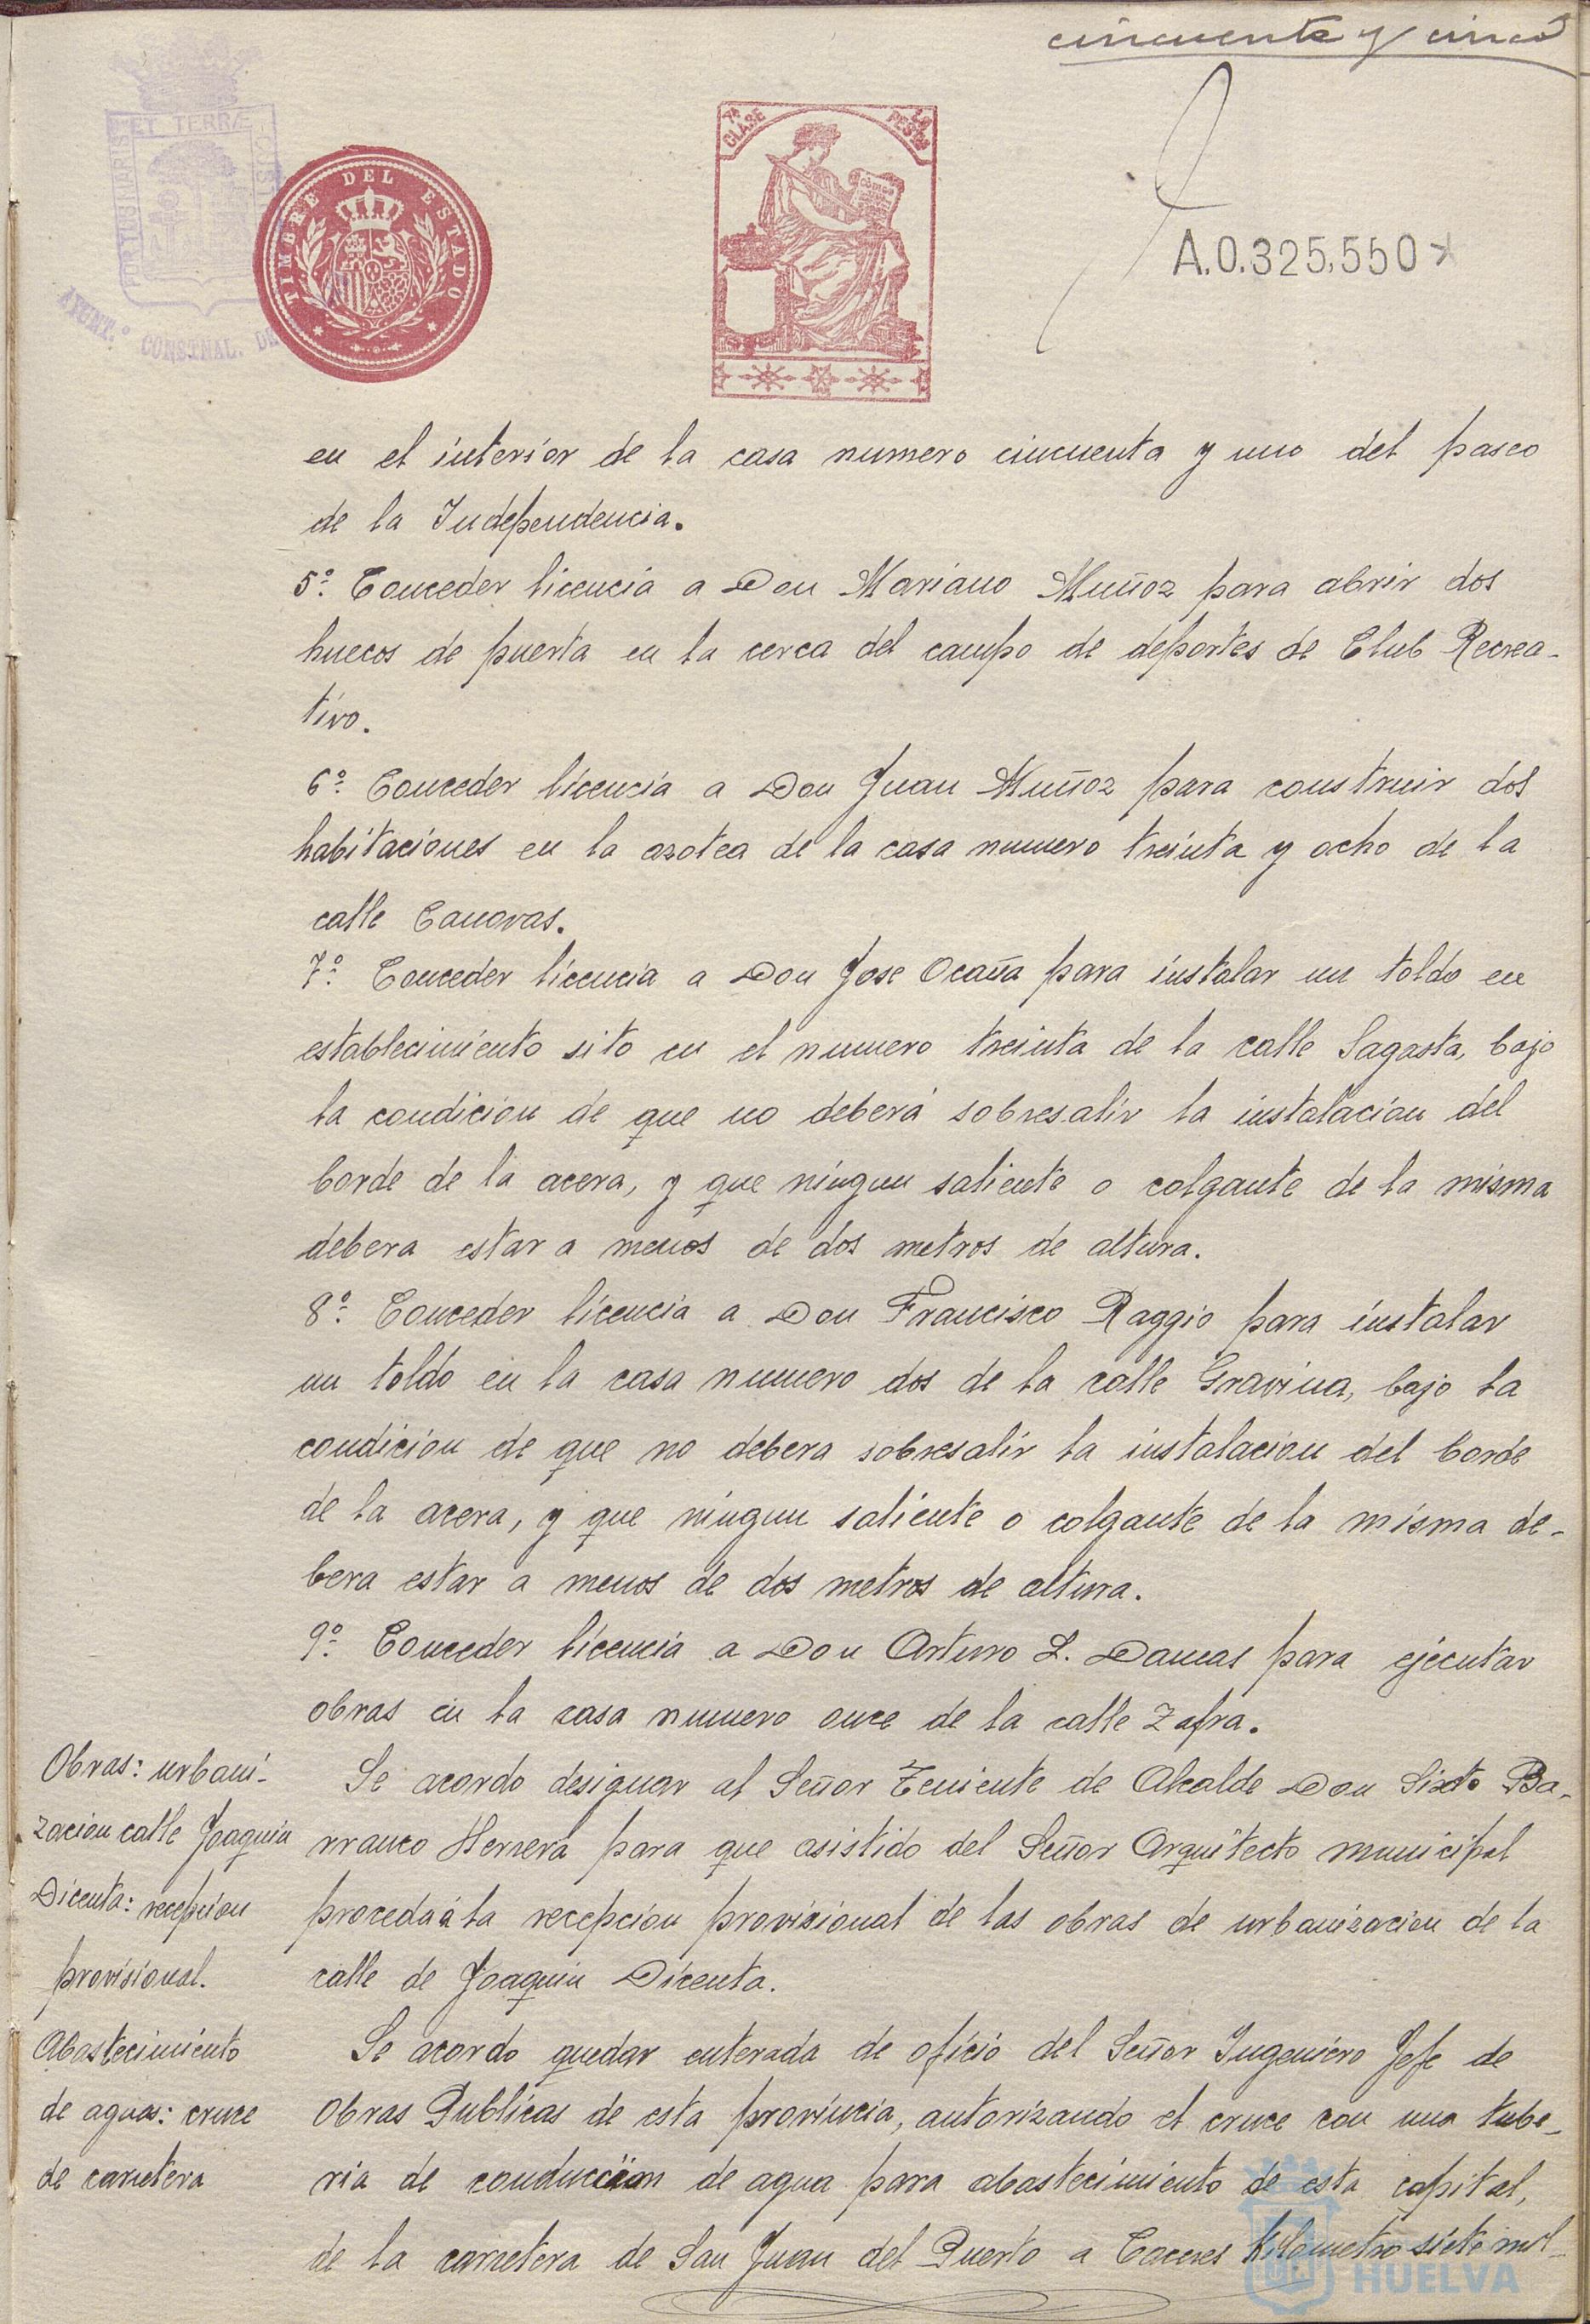 cincuenta y cinco
PORTUS MARIS ET TERRÆ CUSTODIA
AYUNT.º CONSTNAL. DE
TIMBRE DEL ESTADO
7ª CLASE
PESETAS
A.0.325,550
en el interior de la casa numero cincuenta y uno del paseo
de la Independencia.
5º. Conceder licencia a Don Mariano Muñoz para abrir dos
huecos de puerta en la cerca del campo de deportes de Club Recrea-
tivo.
6º. Conceder licencia a Don Juan Muñoz para construir dos
habitaciones en la azotea de la casa numero treinta y ocho de la
calle Canovas.
7º. Conceder licencia a Don Jose Ocaña para instalar un toldo en
establecimiento sito en el numero treinta de la calle Sagasta, bajo
la condicion de que no deberá sobresalir la instalacion del
borde de la acera, y que ningun saliente o colgante de la misma
debera estar a menos de dos metros de altura.
8º. Conceder licencia a Don Francisco Raggio para instalar
un toldo en la casa numero dos de la calle Gravina, bajo la
condicion de que no debera sobresalir la instalacion del borde
de la acera, y que ningun saliente o colgante de la misma de-
bera estar a menos de dos metros de altura.
9º. Conceder licencia a Don Arturo L. Damas para ejecutar
obras en la casa numero once de la calle Zafra.
Obras: urbani-
zacion calle Joaquin
Dicenta: recepcion
provisional.
Se acordo designar al Señor Teniente de Alcalde Don Sixto Ba-
rranco Herrera para que asistido del Señor Arquitecto municipal
proceda á la recepcion provisional de las obras de urbanizacion de la
calle de Joaquin Dicenta.
Abastecimiento
de aguas: cruce
de carretera
Se acordo quedar enterada de oficio del Señor Ingeniero Jefe de
Obras Publicas de esta provincia, autorizando el cruce con una tube-
ria de conduccion de agua para abastecimiento de esta capital,
de la carretera de San Juan del Puerto a Caceres kilometro siete mil-
HUELVA